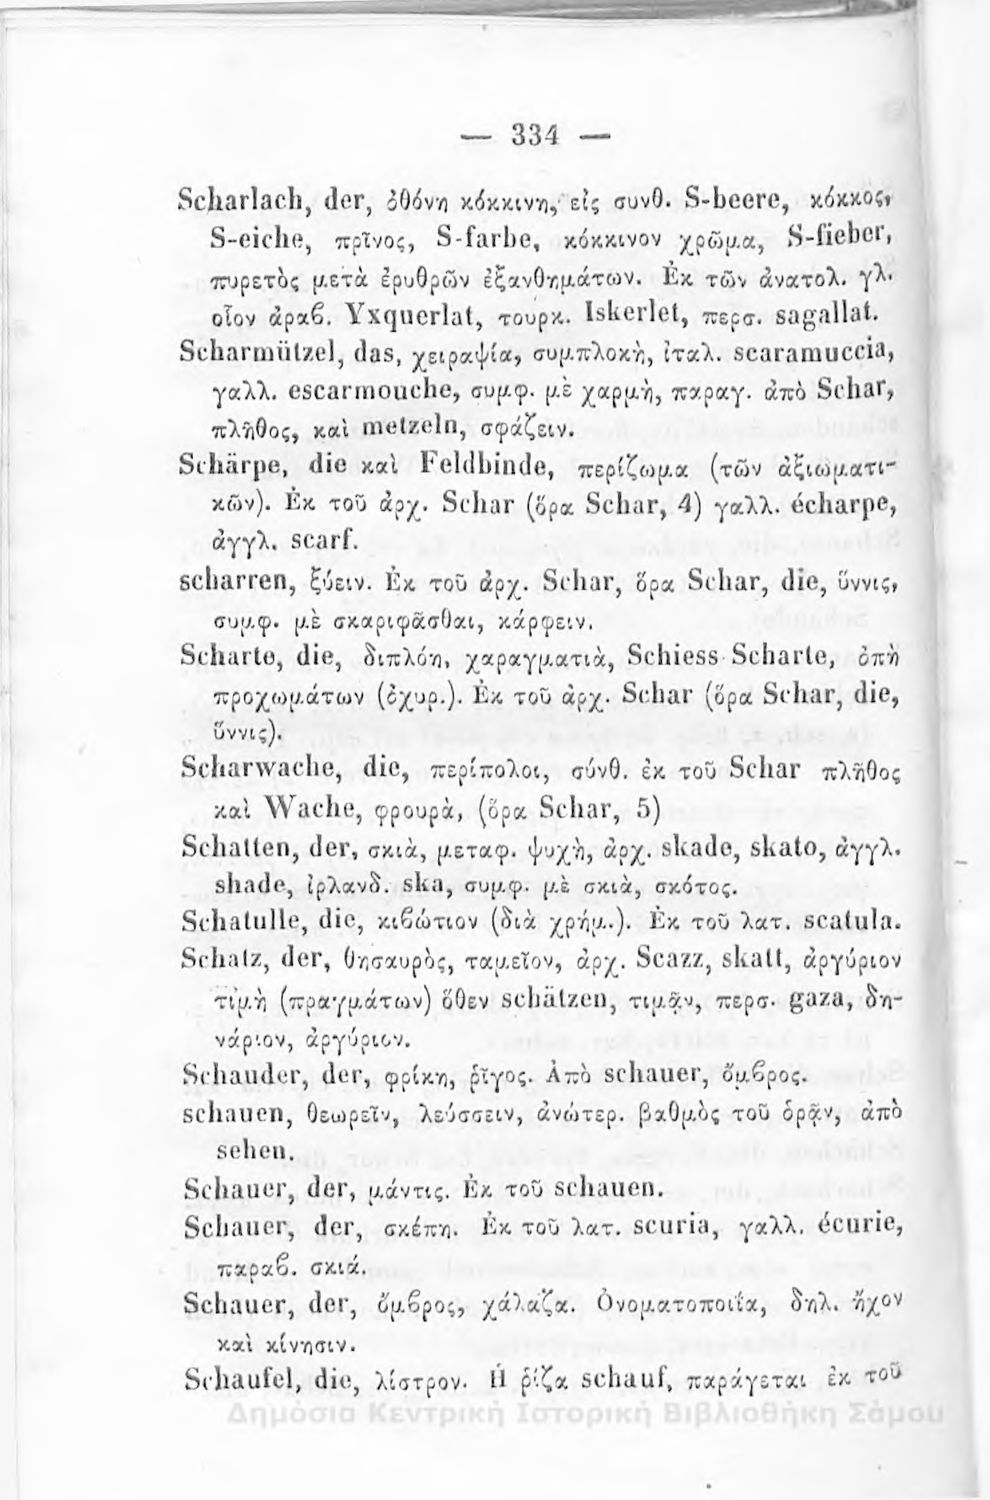 — 334 —
Scharlach, der, ὀθόνη κόκκινη, εἰς συνθ. S-beere, κόκκος,
S-eiche, πρῖνος, S-farbe, κόκκινον χρῶμα, S-fieber,
πυρετὸς μετὰ ἐρυθρῶν ἐξανθημάτων. Ἐκ τῶν ἀνατολ. γλ.
οἷον ἀραβ. Yxquerlat, τουρκ. Iskerlet, περσ. sagallat.
Scharmützel, das, χειραψία, συμπλοκὴ, ἰταλ. scaramuccia,
γαλλ. escarmouche, συμφ. μὲ χαρμὴ, παραγ. ἀπὸ Schar,
πλῆθος, καὶ metzeln, σφάζειν.
Schärpe, die καὶ Feldbinde, περίζωμα (τῶν ἀξιωματι-
κῶν). Ἐκ τοῦ ἀρχ. Schar (ὅρα Schar, 4) γαλλ. écharpe,
ἀγγλ. scarf.
scharren, ξύειν. Ἐκ τοῦ ἀρχ. Schar, ὅρα Schar, die, ὕννις,
συμφ. μὲ σκαριφᾶσθαι, κάρφειν.
Scharte, die, διπλόη, χαραγματιὰ, Schiess-Scharte, ὀπὴ
προχωμάτων (ὀχυρ.). Ἐκ τοῦ ἀρχ. Schar (ὅρα Schar, die,
ὕννις).
Scharwache, die, περίπολοι, σύνθ. ἐκ τοῦ Schar πλῆθος
καὶ Wache, φρουρὰ, (ὅρα Schar, 5)
Schatten, der, σκιὰ, μεταφ. ψυχὴ, ἀρχ. skade, skato, ἀγγλ.
shade, ἰρλανδ. ska, συμφ. μὲ σκιὰ, σκότος.
Schatulle, die, κιβώτιον (διὰ χρήμ.). Ἐκ τοῦ λατ. scatula.
Schatz, der, θησαυρὸς, ταμεῖον, ἀρχ. Scazz, skatt, ἀργύριον
τιμὴ (πραγμάτων) ὅθεν schätzen, τιμᾷν, περσ. gaza, δη-
νάριον, ἀργύριον.
Schauder, der, φρίκη, ῥῖγος. Ἀπὸ schauer, ὄμβρος.
schauen, θεωρεῖν, λεύσσειν, ἀνώτερ. βαθμὸς τοῦ ὁρᾷν, ἀπὸ
sehen.
Schauer, der, μάντις. Ἐκ τοῦ schauen.
Schauer, der, σκέπη. Ἐκ τοῦ λατ. scuria, γαλλ. écurie,
παραβ. σκιά.
Schauer, der, ὄμβρος, χάλαζα. Ὀνοματοποιΐα, δηλ. ἦχον
καὶ κίνησιν.
Schaufel, die, λίστρον. Ἡ ῥίζα schauf, παράγεται ἐκ τοῦ
Δημόσια Κεντρική Ιστορική Βιβλιοθήκη Σάμου